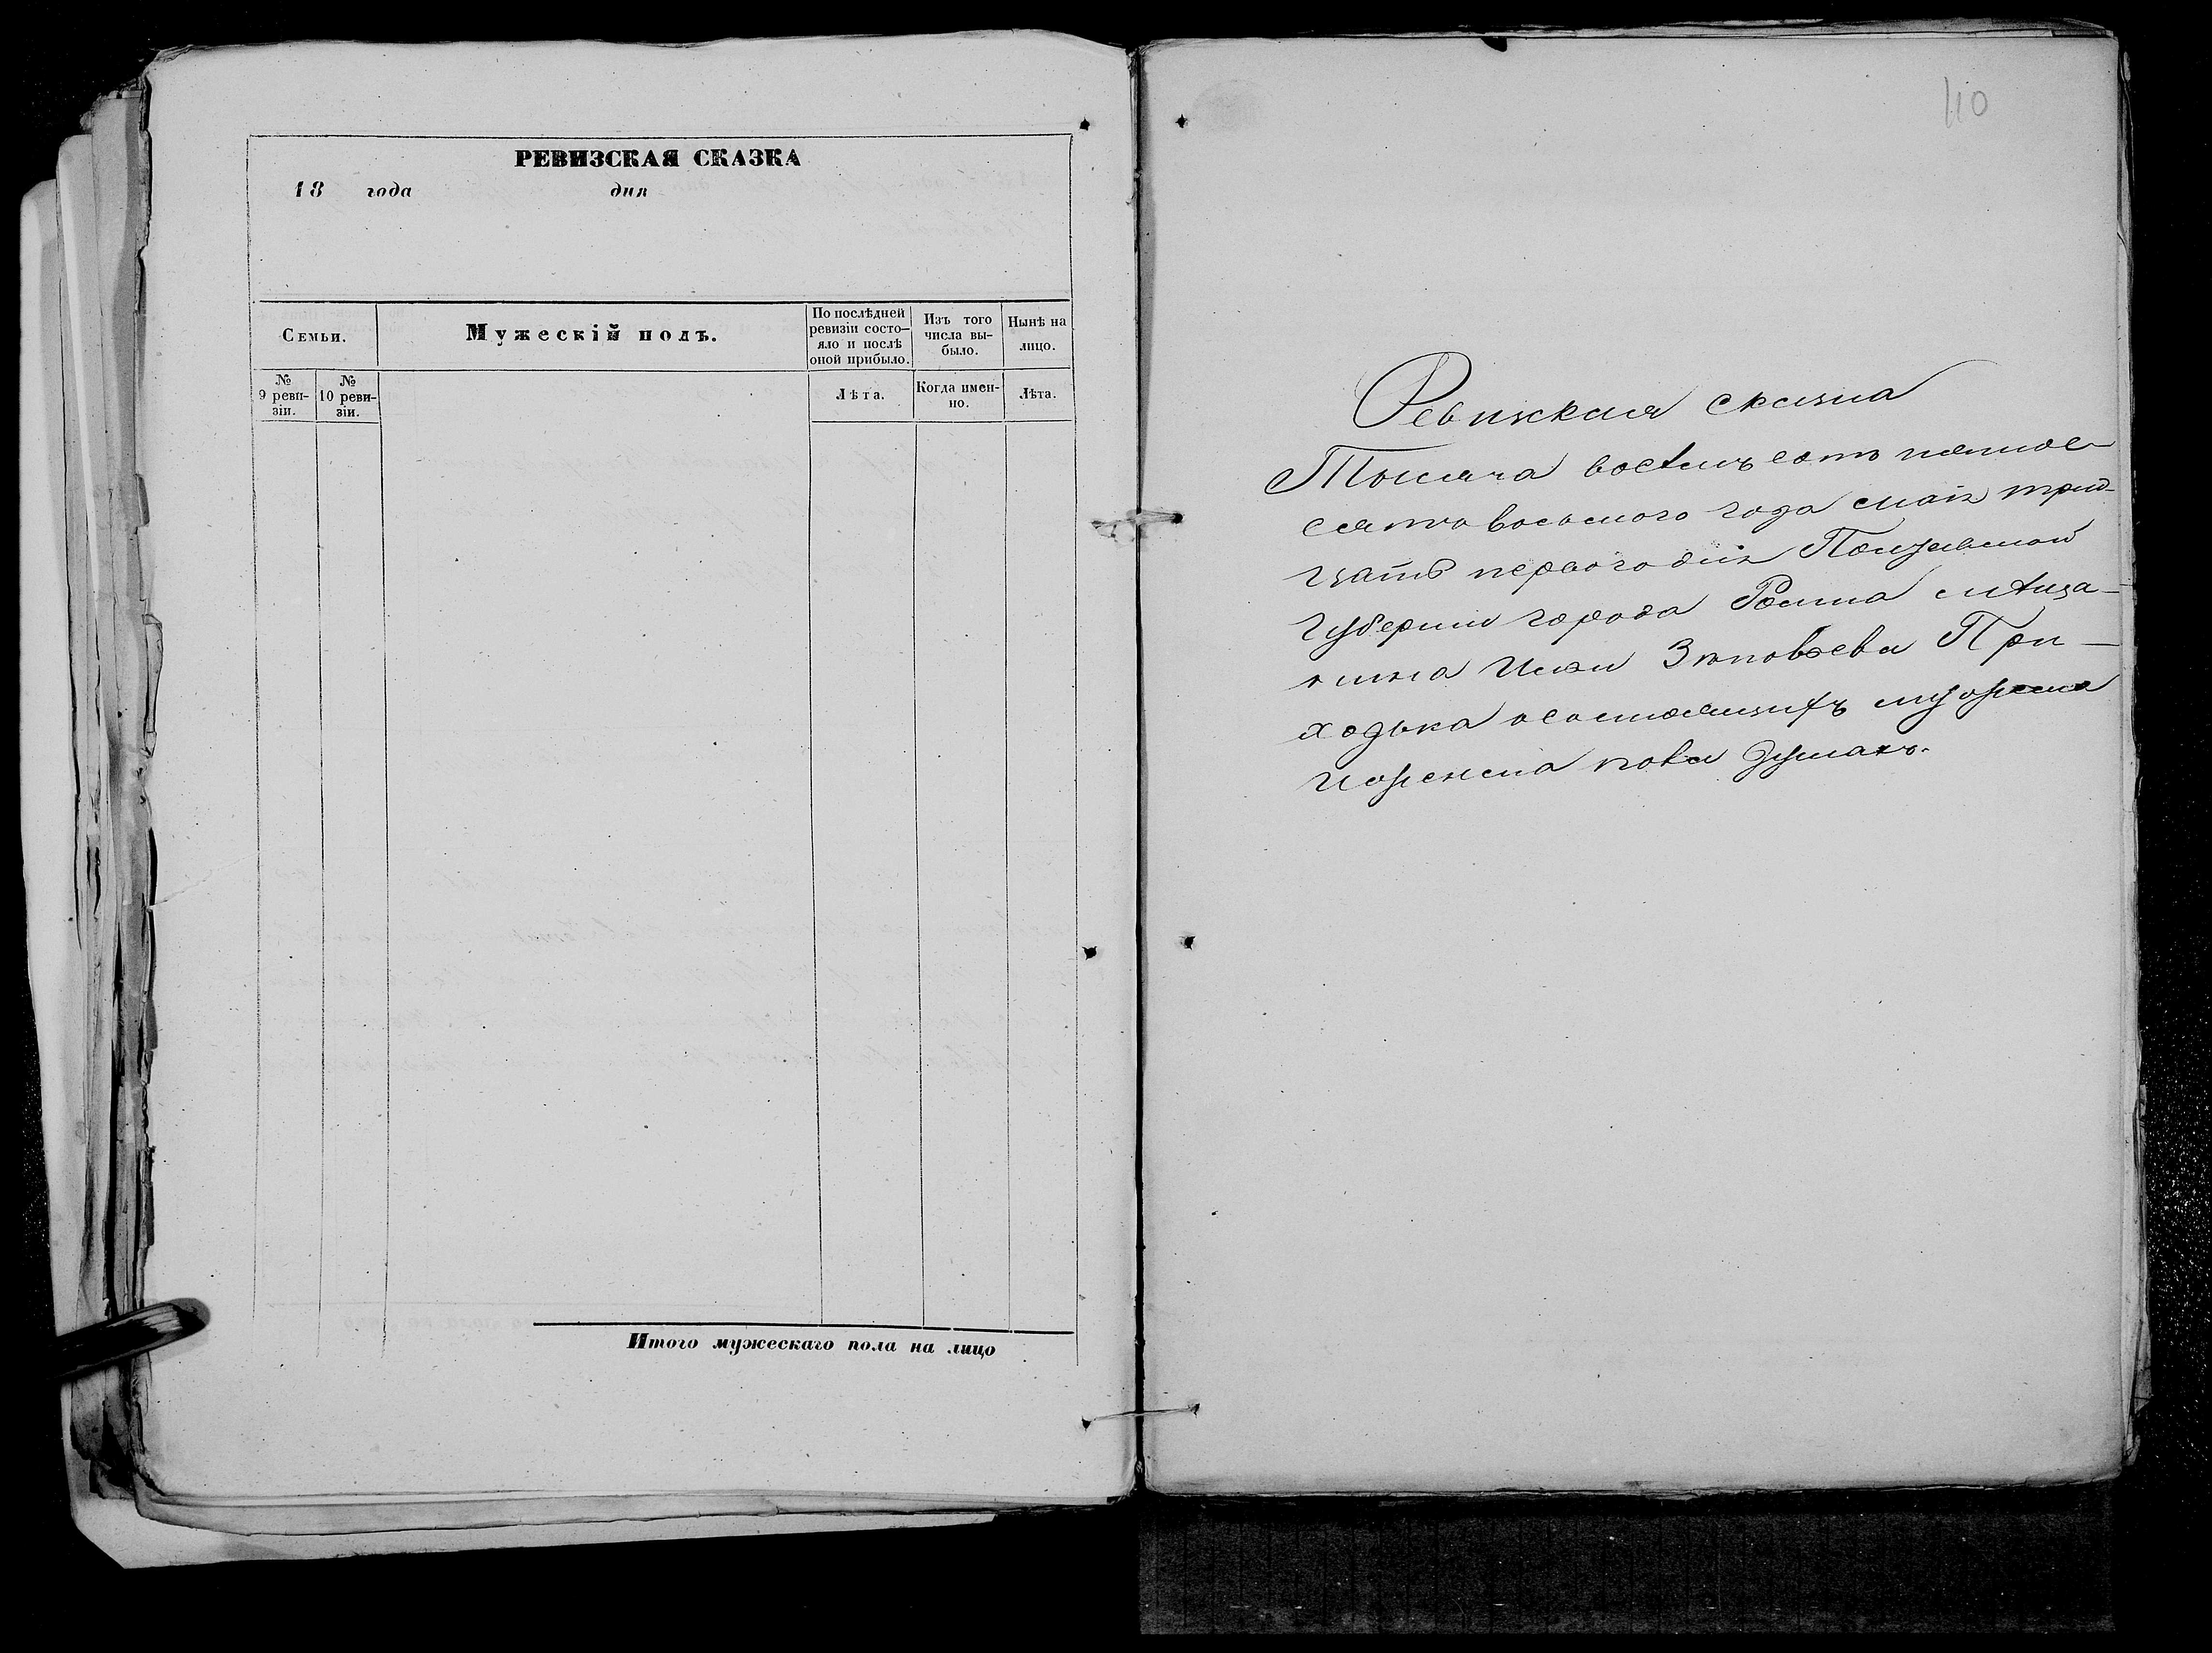 РЕВИЗСКАЯ СКАЗКА
18 года дня
Семьи.
Мужескій полъ.
По послѣдней
ревизіи состо-
яло и послѣ
оной прибыло.
Изъ того
числа вы-
было.
Нынѣ на
лицо.
№
9 реви-
зіи.
№
10 реви-
зіи.
Лѣта.
Когда имен-
но.
Лѣта.
Итого мужескаго пола на лицо
110
Ревизская сказка
Тысяча восемь сотъ пятде
сятъ восьмого года маія трид-
цать первого дня Полтавской
губерніи города Ромна мѣща-
нина Зиновьева При-
ходька о состоящихъ мужеска
и женска пола душахъ.